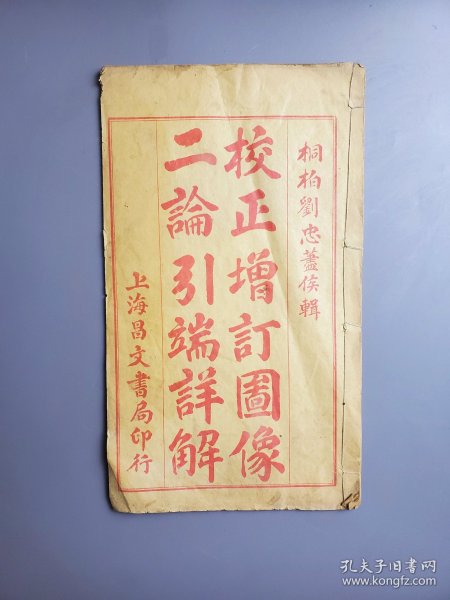 桐柏劉忠藎侯輯
校正增訂圖像
二論引端詳解
上海昌文書局印行
孔夫子旧书网
www.kongfz.com